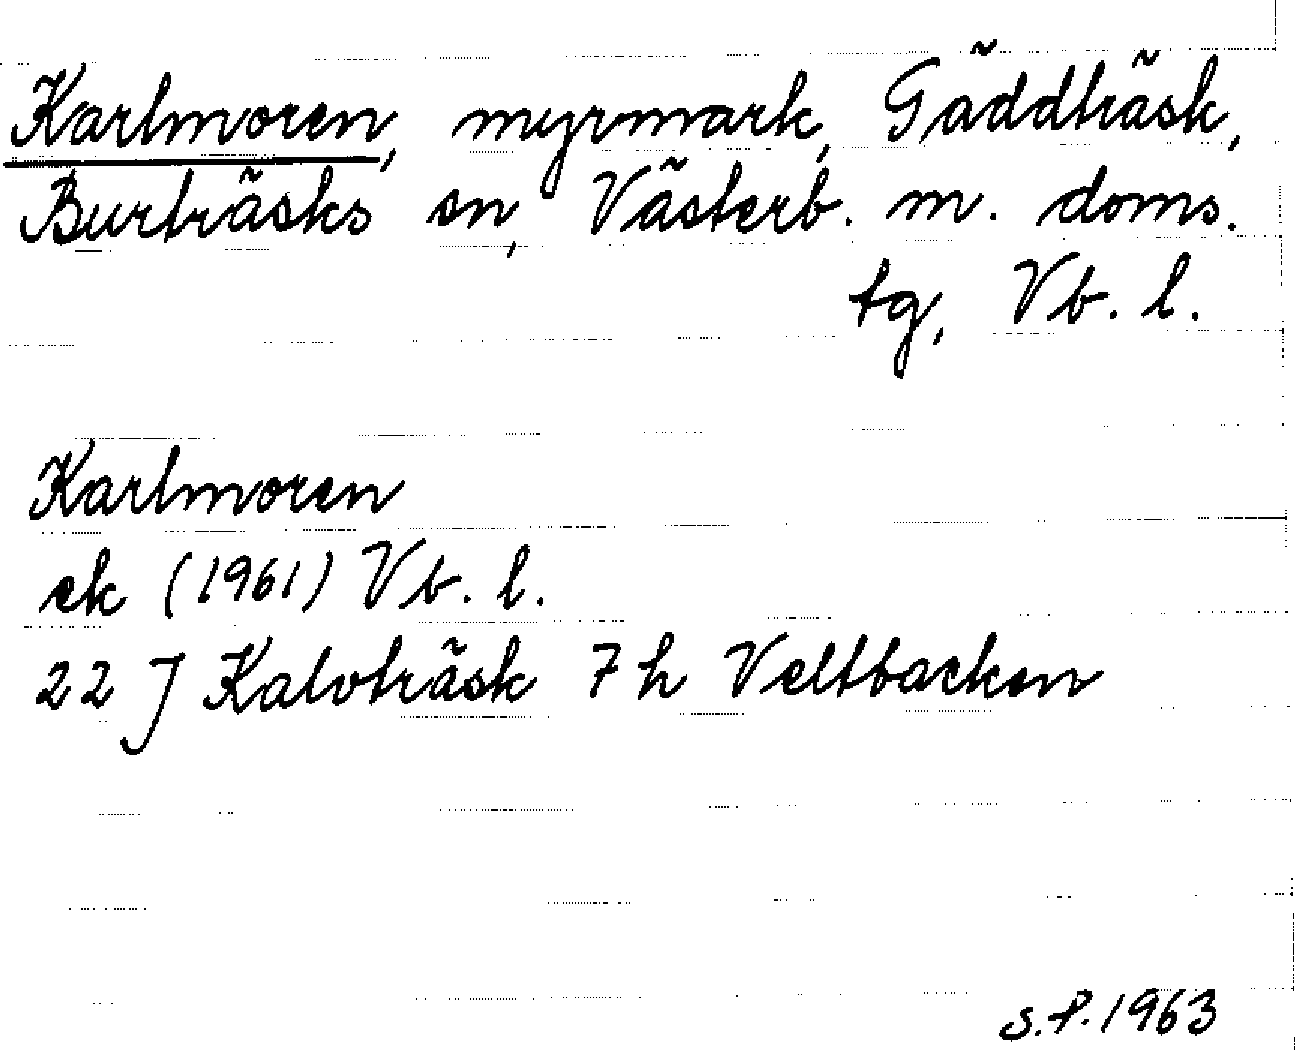 Karlmoren, myrmark, Gäddträsk,
Burträsks sn, Västerb. m. doms.
tg, Vb. l.
Karlmoren
ek (1961) Vb. l.
22 J Kalvträsk 7 h Veltbacken
S.P. 1963